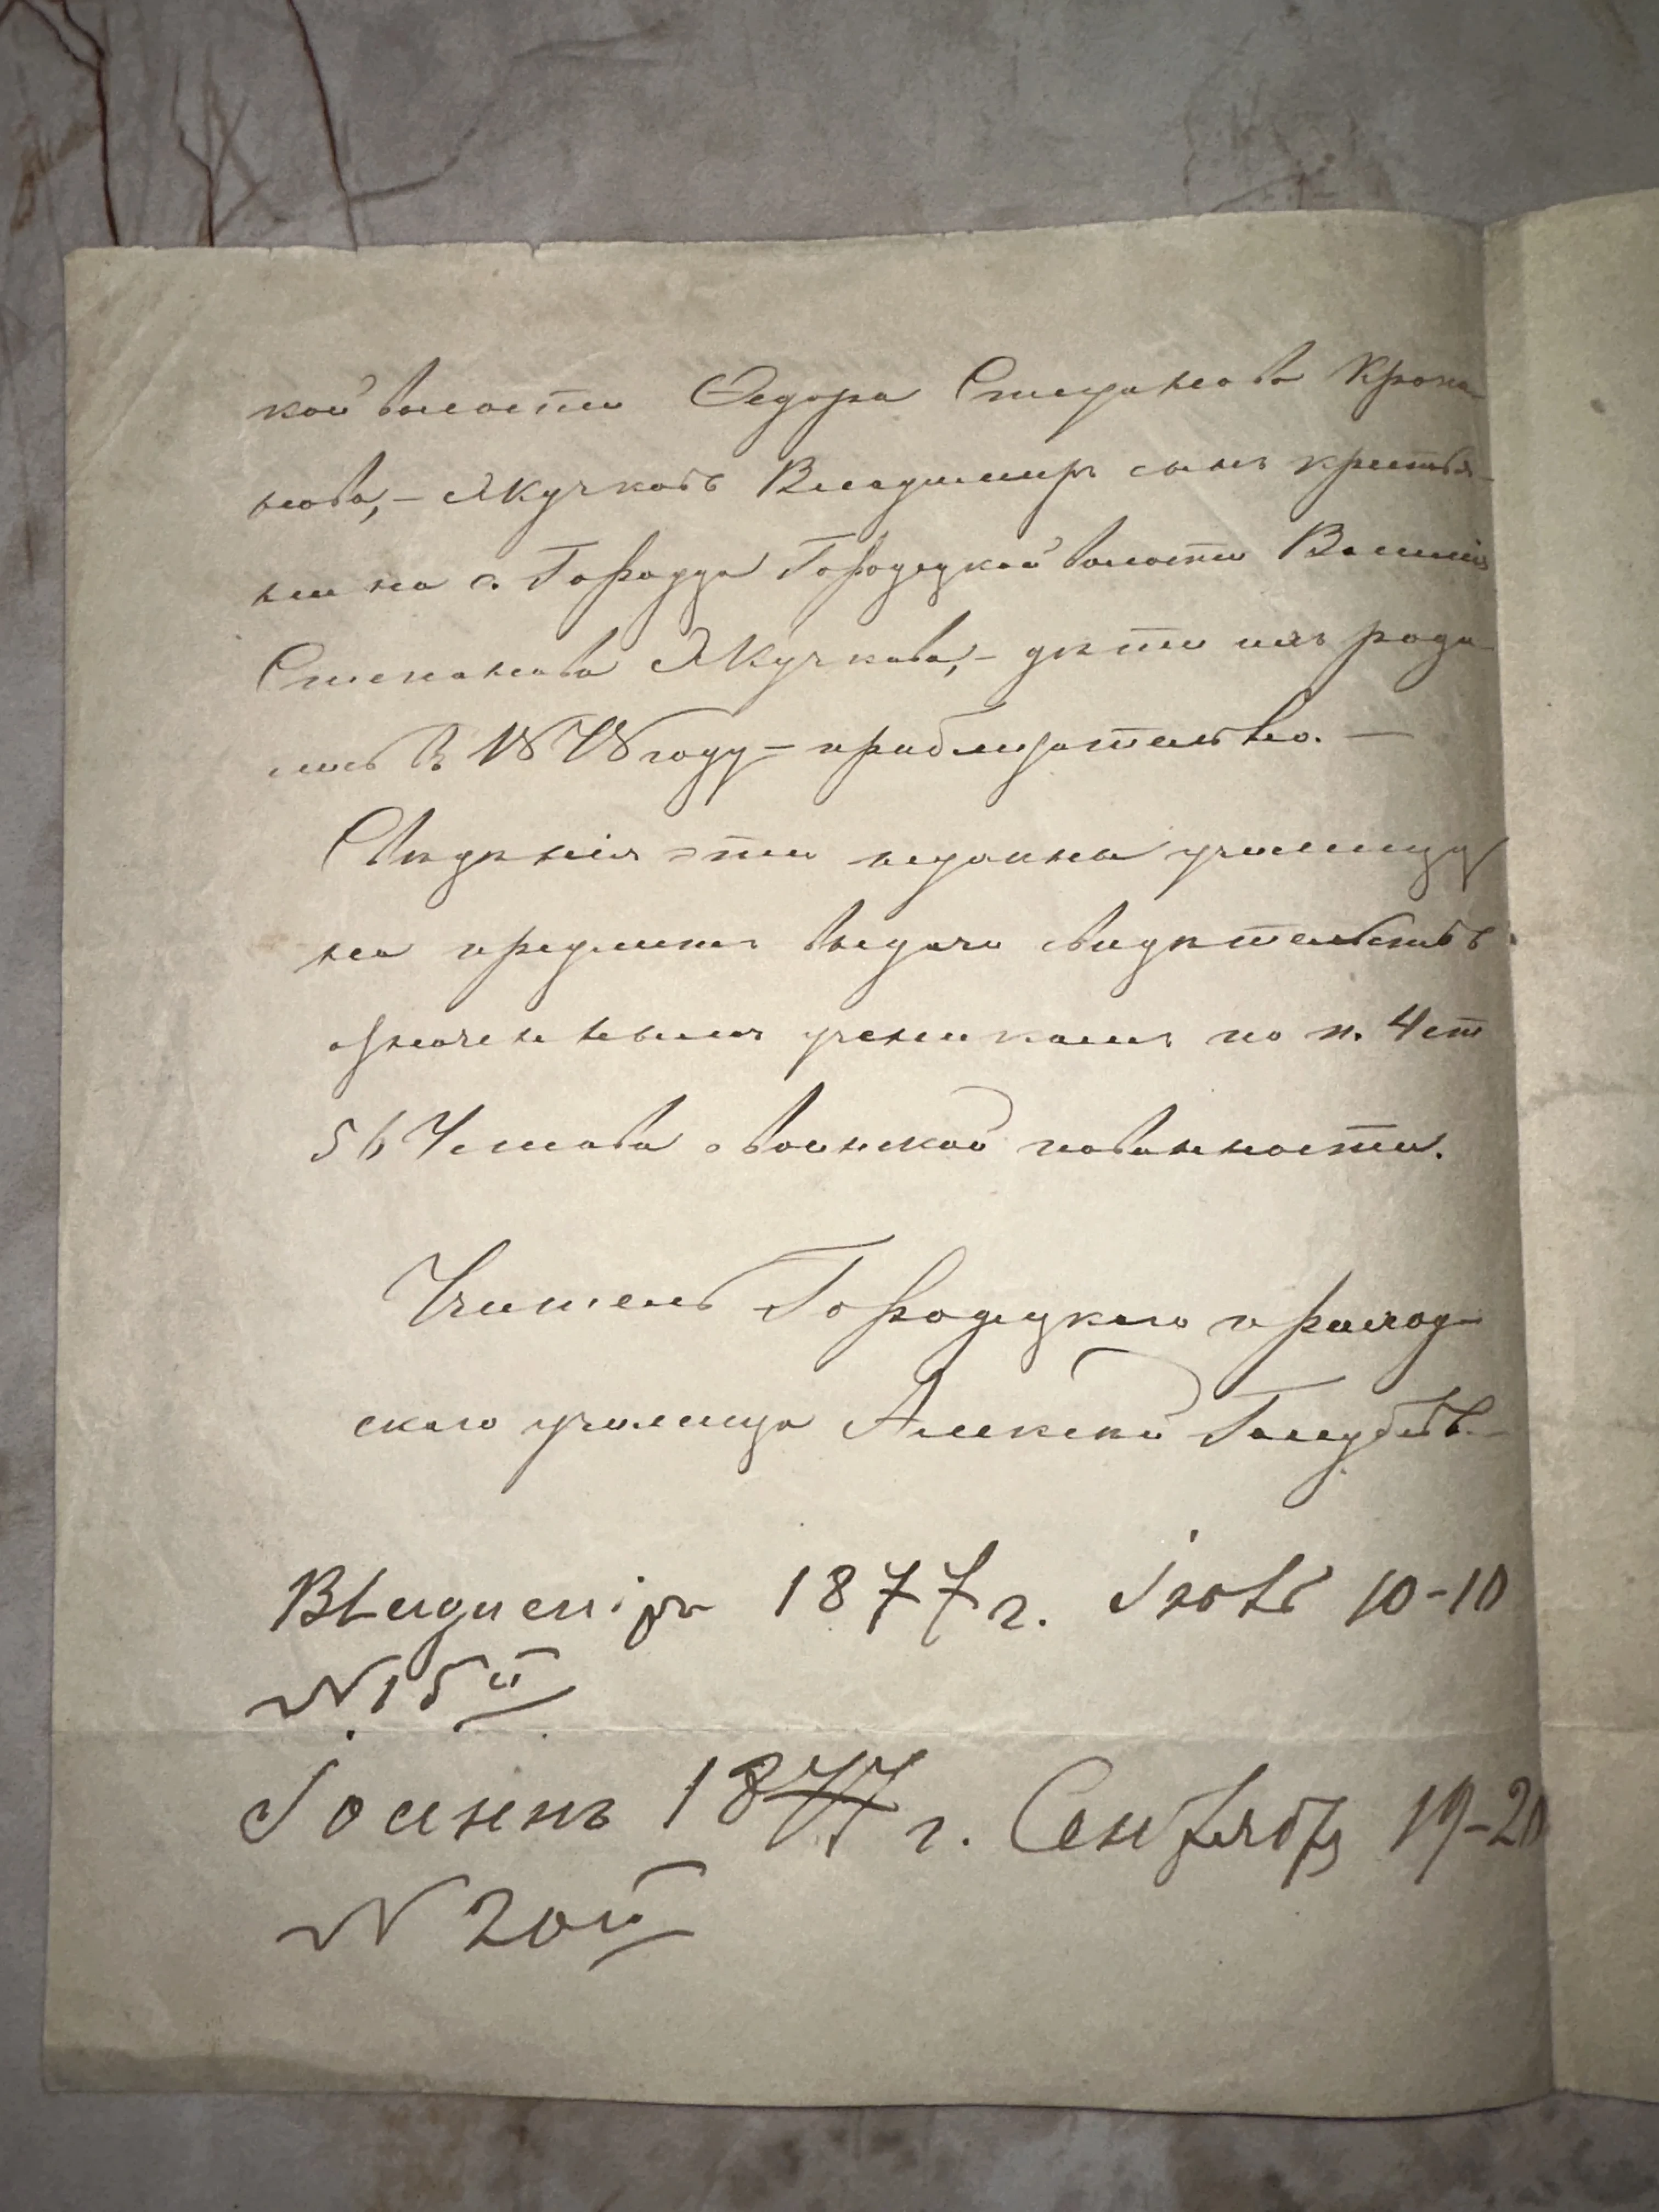 кой волости Ѳедора Степанова Крона-
нова, – Якучковъ Владимиръ сынъ крестья-
нина с. Городца Городецкой волости Василія
Степанова Якучкова, – дѣти ихъ роди-
лись въ 1878 году – приблизительно. –
Свѣдѣнія эти нужны училищу
на предметъ выдачи свидѣтельствъ
означеннымъ ученикамъ по п. 4 ст
56 Устава о воинской повинности.
Учитель Городецкаго приход-
скаго училища Алексѣй Голубевъ
Владиміръ 1877 г. Іюль 10-10
№ 15й
Іоаннъ 1877 г. Сентябрь 19-20
№ 20й